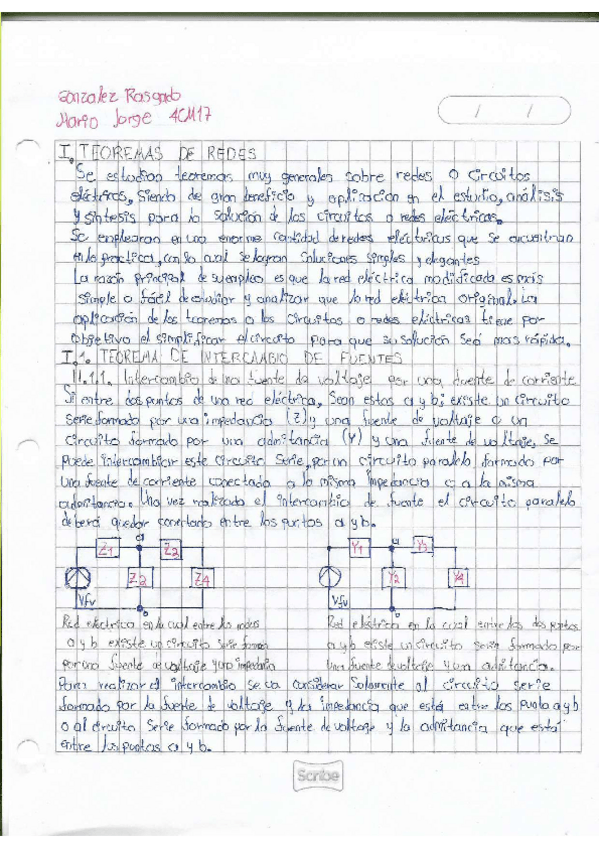 Gonzalez Rasgado
Mario Jorge 4CM17
/ /
I. TEOREMAS DE REDES
Se estudian teoremas muy generales sobre redes o circuitos
eléctricos, siendo de gran beneficio y aplicación en el estudio, análisis
y síntesis para la solución de los circuitos o redes eléctricas.
Se emplearan en una enorme cantidad de redes eléctricas que se encuentran
en la practica, con lo cual se logran soluciones simples y elegantes
La razón principal de su empleo es que la red eléctrica modificada es más
simple o fácil de estudiar y analizar que la red eléctrica original. La
aplicación de los teoremas a los circuitos o redes eléctricas tiene por
objetivo el simplificar el circuito para que su solución sea más rápida.
I.1. TEOREMA DE INTERCAMBIO DE FUENTES
II.1.1. Intercambio de una fuente de voltaje por una fuente de corriente
Si entre dos puntos de una red eléctrica, sean estos a y b; existe un circuito
serie formado por una impedancia (Z) y una fuente de voltaje o un
circuito formado por una admitancia (Y) y una fuente de voltaje, se
puede intercambiar este circuito serie, por un circuito paralelo formado por
una fuente de corriente conectada a la misma impedancia o a la misma
admitancia. Una vez realizado el intercambio de fuente el circuito paralelo
deberá quedar conectado entre los puntos a y b.
Z1 a Z3 Z2 Z4 Vfv b
Y1 a Y3 Y2 Y4 Vfv b
Red eléctrica en la cual entre los nodos
a y b existe un circuito serie formado
por una fuente de voltaje y una impedancia
Red eléctrica en la cual entre los dos puntos
a y b existe un circuito serie formado por
una fuente de voltaje y una admitancia.
Para realizar el intercambio se va considerar solamente al circuito serie
formado por la fuente de voltaje y la impedancia que está entre los punto a y b
o al circuito serie formado por la fuente de voltaje y la admitancia que está
entre los puntos a y b.
Scribe